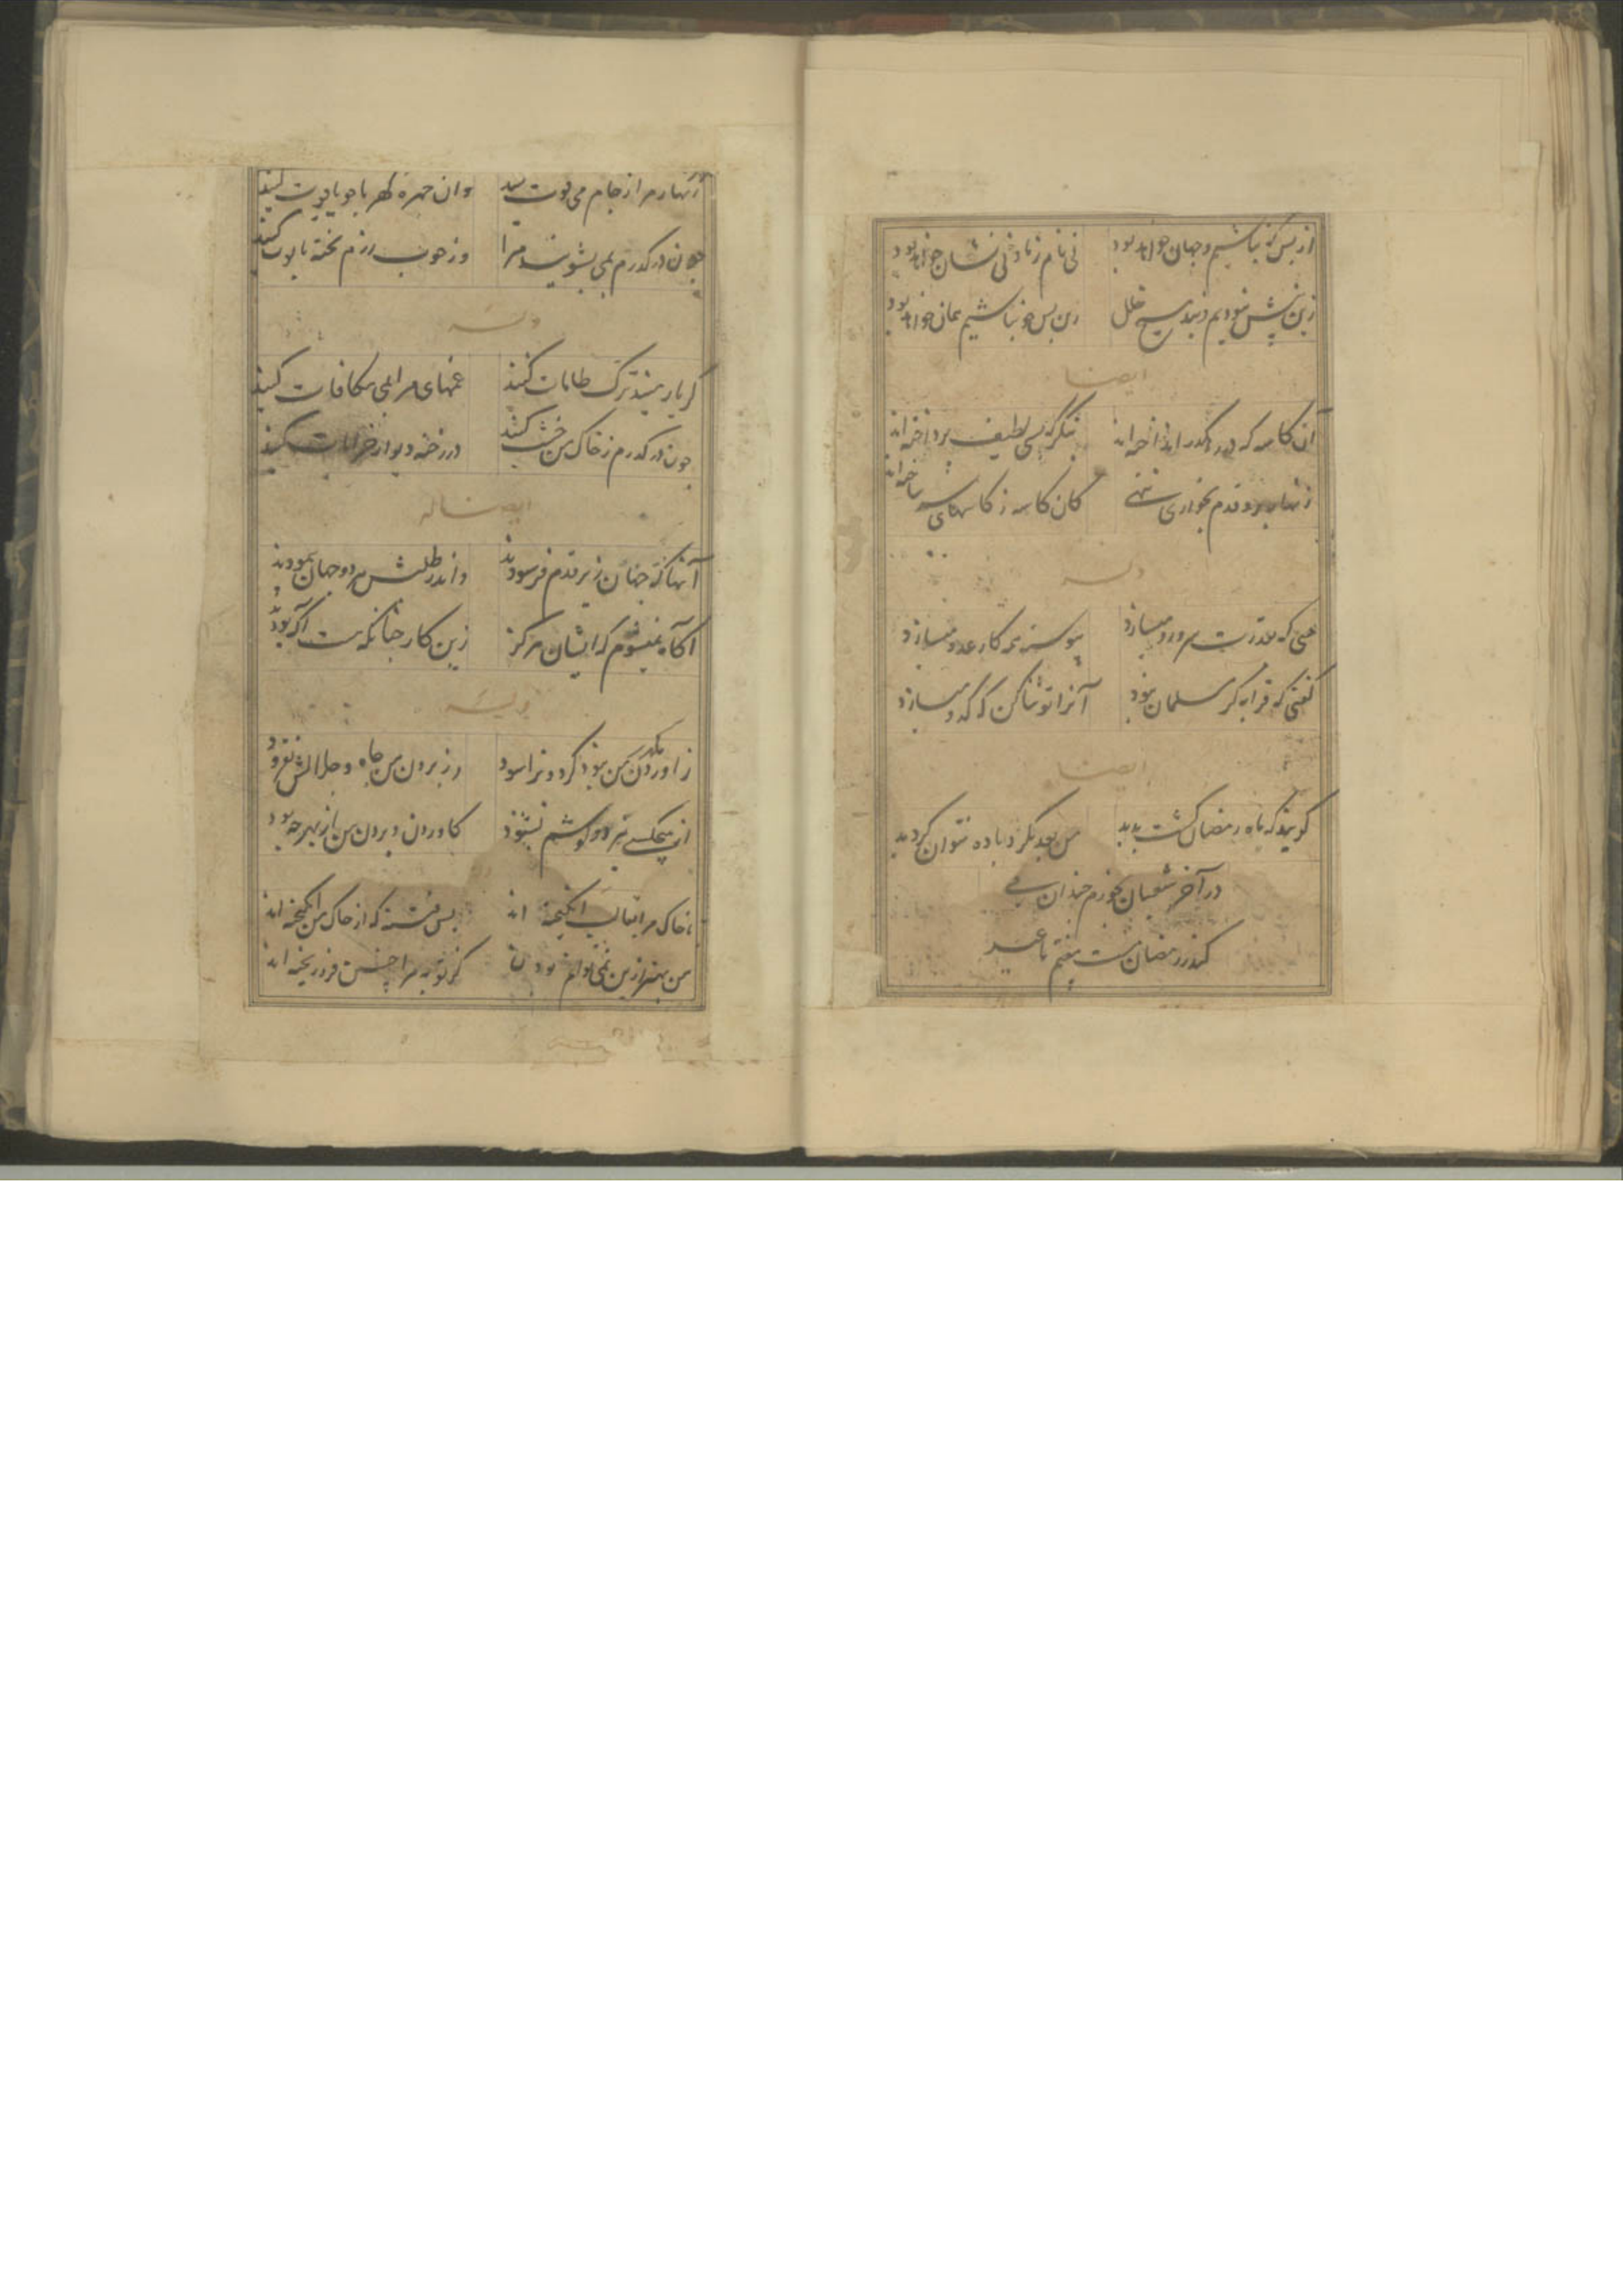 از بس که نباشیم و جهان خواهد بود
نی نام ز ما و نی نشان خواهد بود
زین پیش نبودیم و نبد هیچ خلل
زین پس چو نباشیم همان خواهد بود
ایضا
آن کاسه که
بنگر که بسی لطیف پرداخته اند
زنهار برو قدم بخواری ننهی
کان کاسه ز کاسهای سر ساخته اند
وله
می که
پیوسته همه کار عدو میسازد
گفتی که قرابه گر مسلمان نبود
آنرا تو ثنا کن که کدو میسازد
ایضا
گویند که ماه رمضان گشت پدید
من بعد بگرد باده نتوان گردید
در آخر شعبان بخورم چندان می
کندر رمضان مست بیفتم تا عید
زنهار مرا ز جام می قوت کنید
وان چهره کهربا چو یاقوت کنید
چون درگذرم بمی بشویید مرا
وز چوب رزم تخته تابوت کنید
وله
گر یار منید ترک طامات کنید
غمهای مرا بمی مکافات کنید
چون درگذرم ز خاک من خشت کنید
در رخنه دیوار خرابات کنید
ایضا له
آنها که جهان زیر قدم فرسودند
واندر طلبش هر دو جهان پیمودند
آگاه نمیشوم که ایشان هرگز
زین کار چنانکه هست آگه بودند
وله
ز اوردن من نبود گردون را سود
وز بردن من جاه و جلالش نفزود
از هیچکسی نیز دو گوشم نشنود
کاوردن و بردن من از بهر چه بود
خاک مرا بقالب انگیخته اند
بس فتنه که از خاک من انگیخته اند
من بهتر ازین نمی توانم بودن
کز بوته مرا چنین فرو ریخته اند